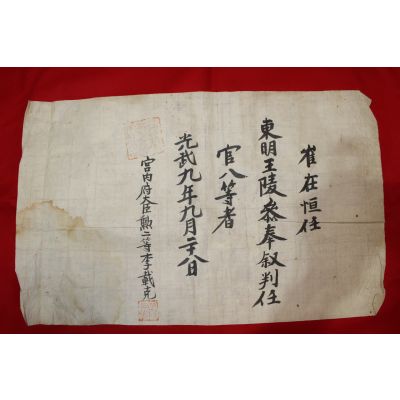 崔在恒任
東明王陵參奉叙判任
官八等者
光武九年九月二十八日
宮內府大臣勲二等李載克